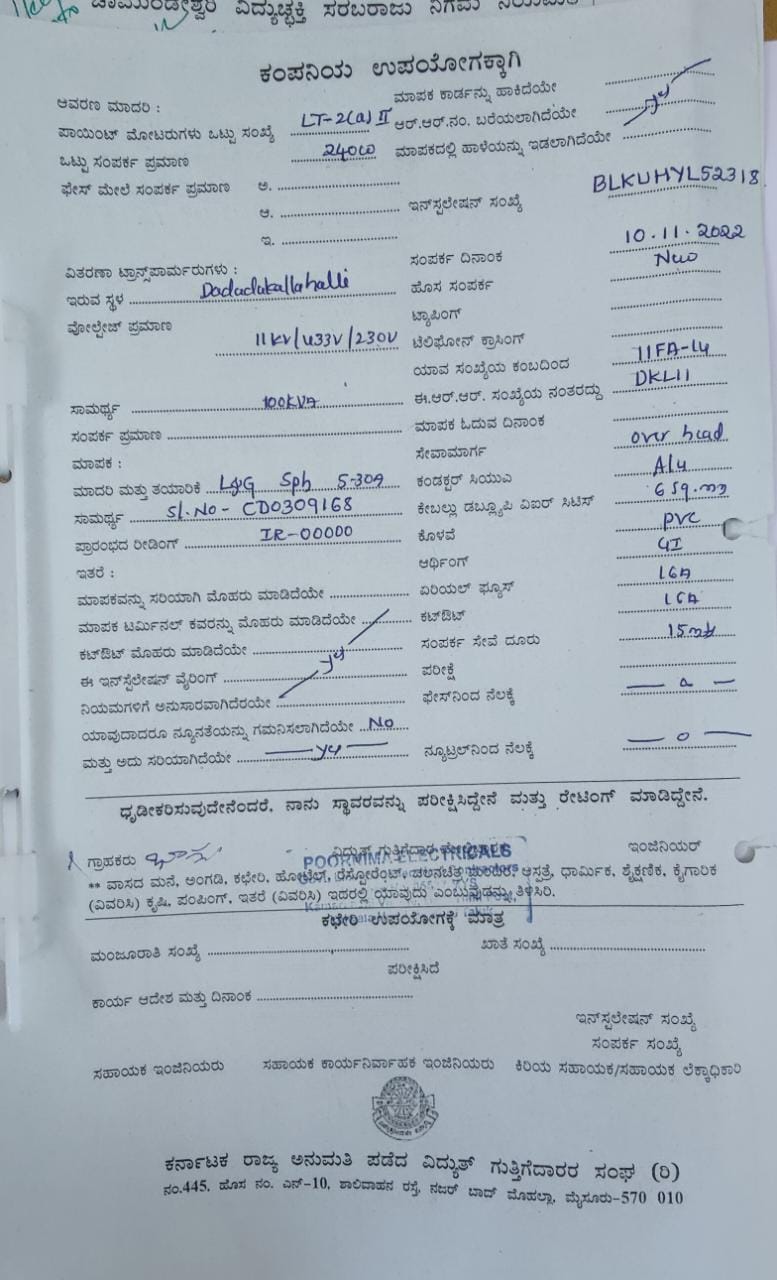 ಚಾಮುಂಡೇಶ್ವರಿ ವಿದ್ಯುಚ್ಛಕ್ತಿ ಸರಬರಾಜು ನಿಗಮ
ಕಂಪನಿಯ ಉಪಯೋಗಕ್ಕಾಗಿ
ಆವರಣ ಮಾದರಿ : ಮಾಪಕ ಕಾರ್ಡನ್ನು ಹಾಕಿದೆಯೇ
ಪಾಯಿಂಟ್ ಮೋಟರುಗಳು ಒಟ್ಟು ಸಂಖ್ಯೆ LT-2(a) II ಆರ್.ಆರ್.ನಂ. ಬರೆಯಲಾಗಿದೆಯೇ
ಒಟ್ಟು ಸಂಪರ್ಕ ಪ್ರಮಾಣ 2400 ಮಾಪಕದಲ್ಲಿ ಹಾಳೆಯನ್ನು ಇಡಲಾಗಿದೆಯೇ
ಫೇಸ್ ಮೇಲೆ ಸಂಪರ್ಕ ಪ್ರಮಾಣ ಅ.
ಆ. ಇನ್‌ಸ್ಟಲೇಷನ್ ಸಂಖ್ಯೆ BLKUHYL52318
ಇ.
ವಿತರಣಾ ಟ್ರಾನ್ಸ್‌ಪಾರ್ಮರುಗಳು : ಸಂಪರ್ಕ ದಿನಾಂಕ 10.11.2022
ಇರುವ ಸ್ಥಳ Dodadakallahalli ಹೊಸ ಸಂಪರ್ಕ New
ವೋಲ್ಟೇಜ್ ಪ್ರಮಾಣ ಟ್ಯಾಪಿಂಗ್
11KV/433V/230V ಟೆಲಿಫೋನ್ ಕ್ರಾಸಿಂಗ್
ಯಾವ ಸಂಖ್ಯೆಯ ಕಂಬದಿಂದ 11FA-L4
ಸಾಮರ್ಥ್ಯ 100KVA ಈ.ಆರ್.ಆರ್. ಸಂಖ್ಯೆಯ ನಂತರದ್ದು DKL11
ಸಂಪರ್ಕ ಪ್ರಮಾಣ ಮಾಪಕ ಓದುವ ದಿನಾಂಕ
ಮಾಪಕ : ಸೇವಾಮಾರ್ಗ over head
ಮಾದರಿ ಮತ್ತು ತಯಾರಿಕೆ L&G Sph 5-30A ಕಂಡಕ್ಟರ್ ಸಿಯುಎ Alu
ಸಾಮರ್ಥ್ಯ Sl.No - CD0309168 ಕೇಬಲ್ಲು ಡಬ್ಲ್ಯೂಪಿ ವಿಐರ್ ಸಿಟಿಸ್ 6 sq.mm
ಪ್ರಾರಂಭದ ರೀಡಿಂಗ್ IR-00000 ಕೊಳವೆ PVC
ಇತರೆ : ಆರ್ಥಿಂಗ್ GI
ಮಾಪಕವನ್ನು ಸರಿಯಾಗಿ ಮೊಹರು ಮಾಡಿದೆಯೇ ಏರಿಯಲ್ ಫ್ಯೂಸ್ 16A
ಮಾಪಕ ಟರ್ಮಿನಲ್ ಕವರನ್ನು ಮೊಹರು ಮಾಡಿದೆಯೇ ಕಟ್‌ಔಟ್ 16A
ಕಟ್‌ಔಟ್ ಮೊಹರು ಮಾಡಿದೆಯೇ ಸಂಪರ್ಕ ಸೇವೆ ದೂರು 15mt
ಈ ಇನ್‌ಸ್ಟೆಲೇಷನ್ ವೈರಿಂಗ್ ಪರೀಕ್ಷೆ
ನಿಯಮಗಳಿಗೆ ಅನುಸಾರವಾಗಿದೆರಯೇ ಫೇಸ್‌ನಿಂದ ನೆಲಕ್ಕೆ
ಯಾವುದಾದರೂ ನ್ಯೂನತೆಯನ್ನು ಗಮನಿಸಲಾಗಿದೆಯೇ No
ಮತ್ತು ಅದು ಸರಿಯಾಗಿದೆಯೇ ನ್ಯೂಟ್ರಲ್‌ನಿಂದ ನೆಲಕ್ಕೆ
ಧೃಡೀಕರಿಸುವುದೇನೆಂದರೆ, ನಾನು ಸ್ಥಾವರವನ್ನು ಪರೀಕ್ಷಿಸಿದ್ದೇನೆ ಮತ್ತು ರೇಟಿಂಗ್ ಮಾಡಿದ್ದೇನೆ.
ಗ್ರಾಹಕರು ವಿದ್ಯುತ್ ಗುತ್ತಿಗೆದಾರ ಇಂಜಿನಿಯರ್
POORNIMA ELECTRICALS
** ವಾಸದ ಮನೆ, ಅಂಗಡಿ, ಕಛೇರಿ, ಹೋಟೆಲ್, ರೆಸ್ಟೋರೆಂಟ್, ಚಲನಚಿತ್ರ ಮಂದಿರ, ಆಸ್ಪತ್ರೆ, ಧಾರ್ಮಿಕ, ಶೈಕ್ಷಣಿಕ, ಕೈಗಾರಿಕ
(ವಿವರಿಸಿ) ಕೃಷಿ, ಪಂಪಿಂಗ್, ಇತರೆ (ವಿವರಿಸಿ) ಇದರಲ್ಲಿ ಯಾವುದು ಎಂಬುವುದನ್ನು ತಿಳಿಸಿರಿ.
ಕಛೇರಿ ಉಪಯೋಗಕ್ಕೆ ಮಾತ್ರ
ಮಂಜೂರಾತಿ ಸಂಖ್ಯೆ ಖಾತೆ ಸಂಖ್ಯೆ
ಪರೀಕ್ಷಿಸಿದೆ
ಕಾರ್ಯ ಆದೇಶ ಮತ್ತು ದಿನಾಂಕ
ಇನ್‌ಸ್ಟಲೇಷನ್ ಸಂಖ್ಯೆ
ಸಂಪರ್ಕ ಸಂಖ್ಯೆ
ಸಹಾಯಕ ಇಂಜಿನಿಯರು ಸಹಾಯಕ ಕಾರ್ಯನಿರ್ವಾಹಕ ಇಂಜಿನಿಯರು ಕಿರಿಯ ಸಹಾಯಕ/ಸಹಾಯಕ ಲೆಕ್ಕಾಧಿಕಾರಿ
ಕರ್ನಾಟಕ ರಾಜ್ಯ ಅನುಮತಿ ಪಡೆದ ವಿದ್ಯುತ್ ಗುತ್ತಿಗೆದಾರರ ಸಂಘ (ರಿ)
ನಂ.445, ಹೊಸ ನಂ. ಎನ್-10, ಶಾಲಿವಾಹನ ರಸ್ತೆ, ನಜರ್ ಬಾದ್ ಮೊಹಲ್ಲಾ, ಮೈಸೂರು-570 010